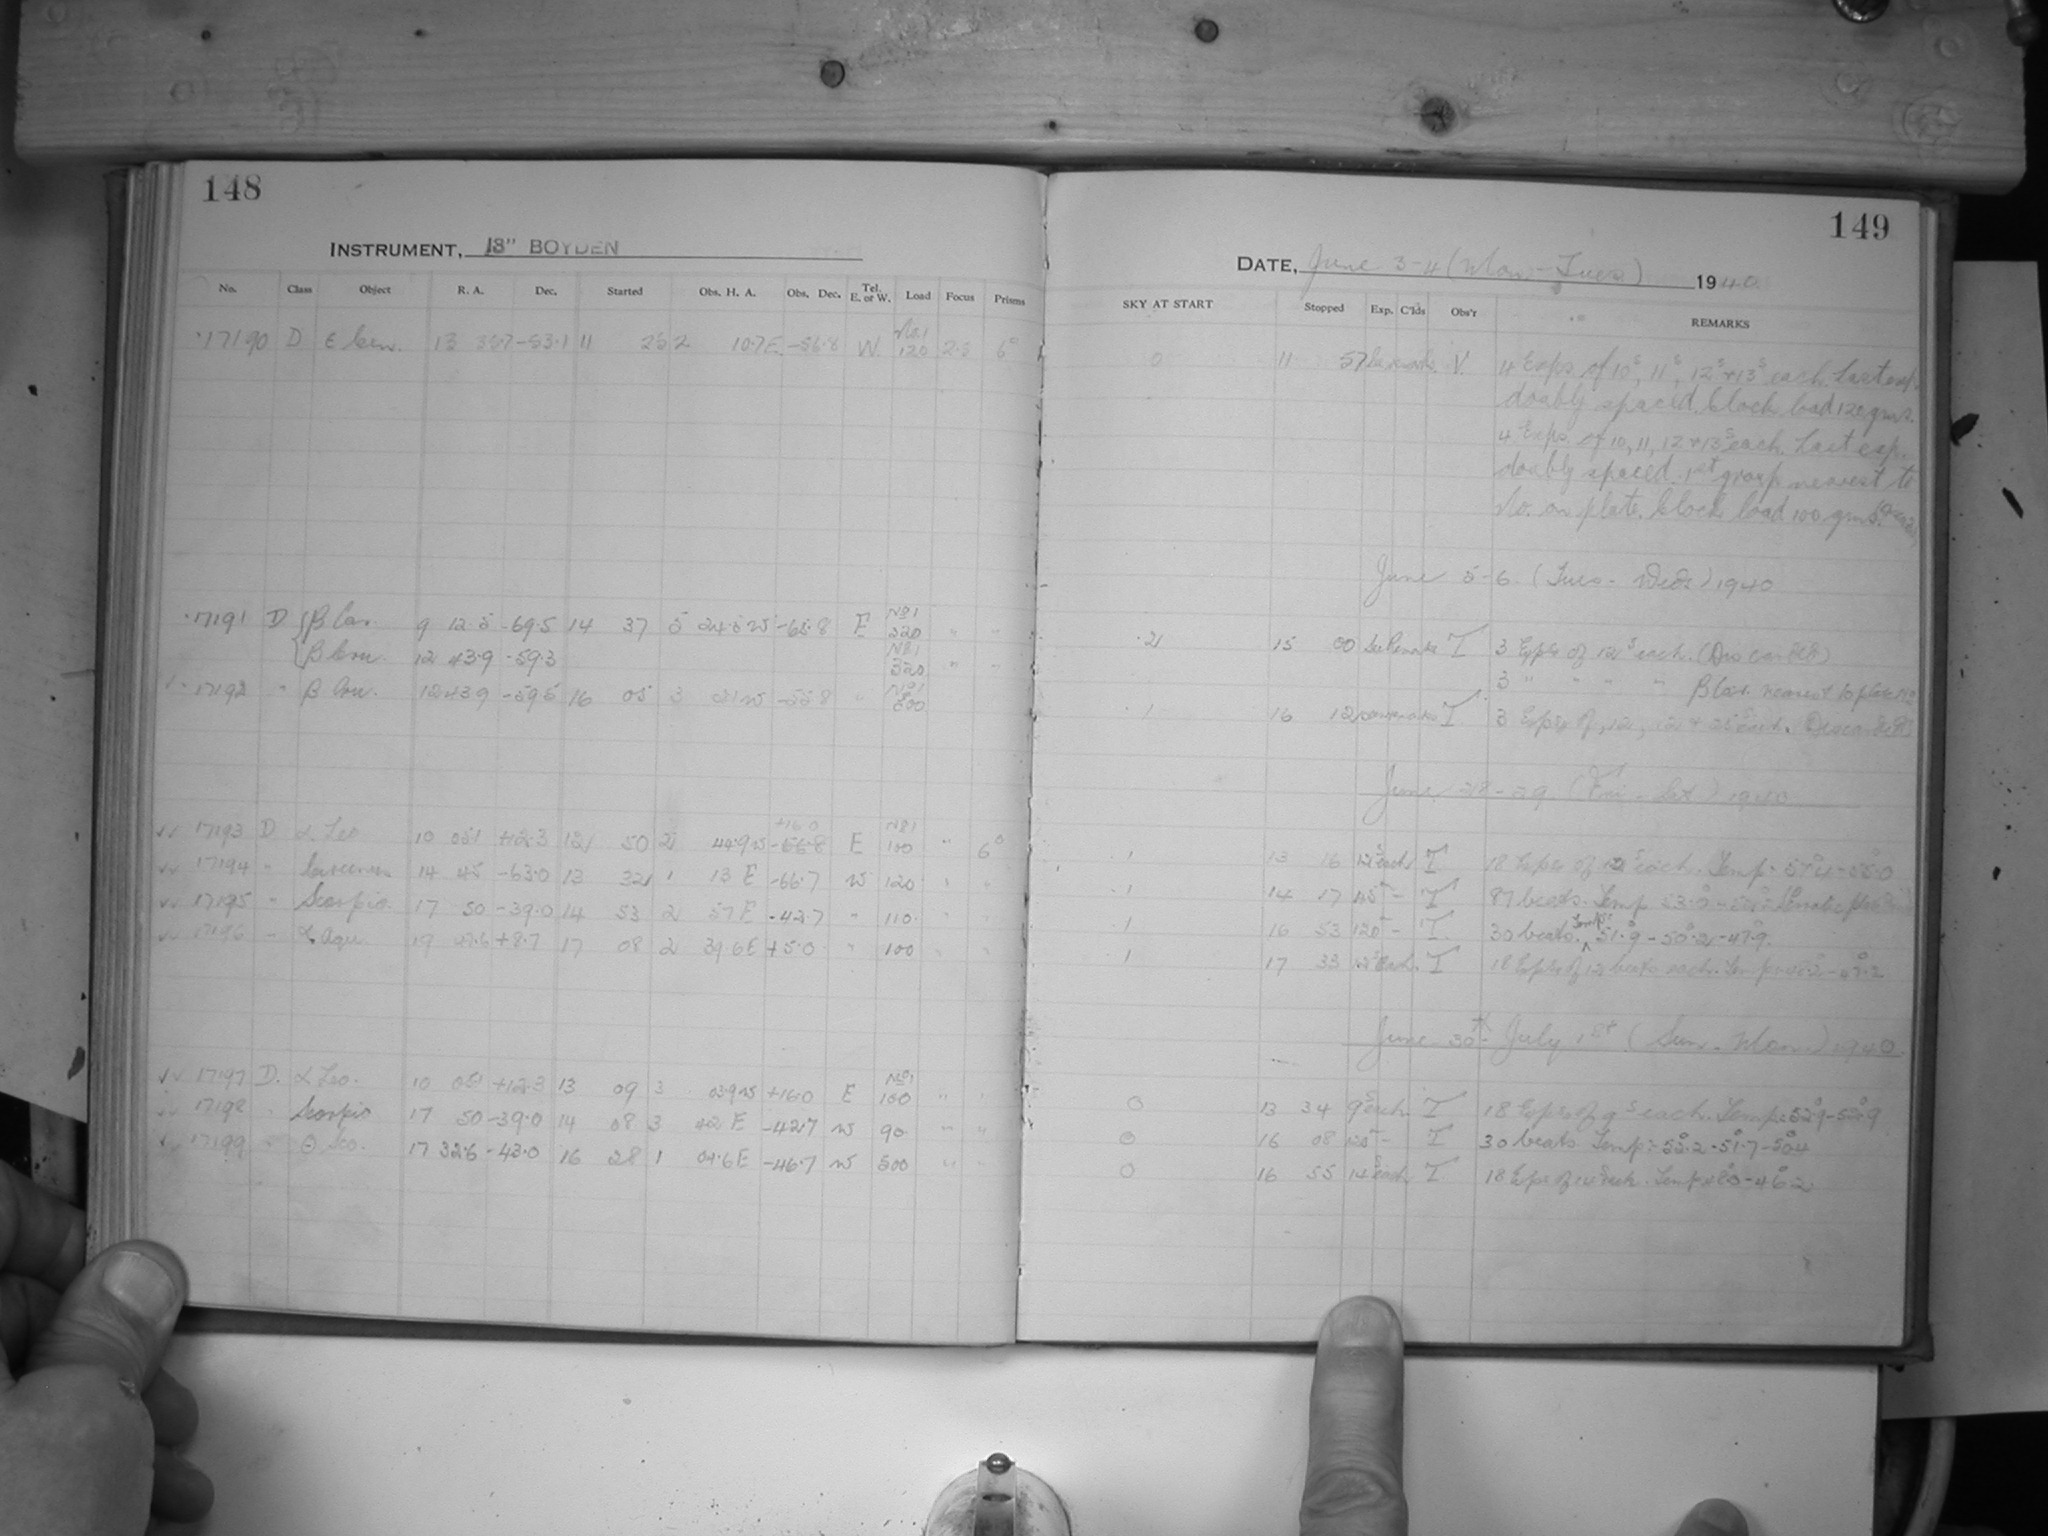 148
INSTRUMENT, 13" BOYDEN
No. Class Object R. A. Dec. Started Obs. H. A. Obs. Dec. Tel. E. or W. Load Focus Prisms
17190 D ε Cen. 13 -53.1 11 2 10.7 E -56.8 W. No.1 120 2.5 6°
17191 D β Car. 9 12.5 -69.5 14 37 5 W E No1 320 " "
β Cru. 12 43.9 -59.3 No1 320 " "
17192 " β Cru. 12 43.9 -59.5 16 05 3 W " No1
17193 D α Leo 10 051 +12.3 12 50 2 44.9 W +16.0 E No1 100 " 6°
17194 " 14 45 -63.0 13 1 13 E -66.7 W 120 " "
17195 " Scorpio 17 50 -39.0 14 53 2 57 E -42.7 " 110 " "
17196 " α Aqu. 19 47.6 +8.7 17 08 2 39.6 E +5.0 " 100 " "
17197 D. α Leo. 10 051 +12.3 13 09 3 03.9 W +16.0 E No1 100 " "
17198 " Scorpio 17 50 -39.0 14 08 3 42 E -42.7 W 90 " "
17199 " θ Sco. 17 32.6 -43.0 16 28 1 04.6 E -46.7 W 500 " "
149
DATE, June 3-4 (Mon - Tues) 1940
SKY AT START Stopped Exp. C'lds Obs'r REMARKS
0 11 57 Remarks V. 4 Exps. of 10s, 11s, 12s + 13s each. Last exp.
doubly spaced. Clock load 120 gms.
4 Exps. of 10, 11, 12 + 13s each. Last exp.
doubly spaced. 1st group nearest to
No. on plate. Clock load 100 gms.
June 5-6. (Tues - Weds) 1940
21 15 00 See Remarks T 3 Exps of 12s each. (Discarded)
3 " " " " β Car. nearest to plate No
1 16 12 T 3 Exps of, 12, 12 + each. (Discarded)
June 28-29 (Fri - Sat) 1940
1 13 16 12s each T 18 Exps of 12s each. Temp:
1 14 17 45 - T 87 beats. Temp
1 16 53 120 - T 30 beats. Temps: 51.9 - 50.2 - 47.9
1 17 33 12s each. T 18 Exps of 12 beats each. Temp - 47.2
June 30th - July 1st (Sun - Mon.) 1940
0 13 34 9s each T 18 Exps of 9s each. Temp: 52.9 - 52.9
0 16 08 120 - T 30 beats Temp:- 52.2 - 51.7 - 50.4
0 16 55 14s each T 18 Exps of 14s each. Temp - 46.2